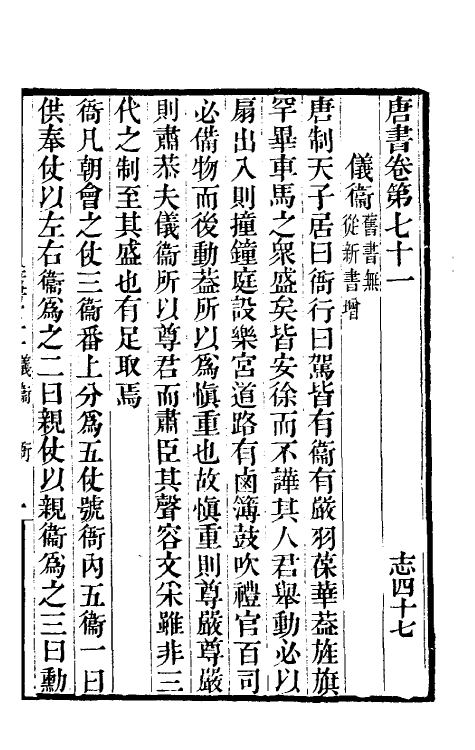 唐書卷第七十一　志四十七
儀衞舊書無從新書增
唐制天子居曰衙行曰駕皆有衞有嚴羽葆華葢旌旗
罕畢車馬之衆盛矣皆安徐而不譁其人君舉動必以
扇出入則撞鐘庭設樂宮道路有鹵簿鼓吹禮官百司
必備物而後動葢所以爲愼重也故愼重則尊嚴尊嚴
則肅恭夫儀衞所以尊君而肅臣其聲容文采雖非三
代之制至其盛也有足取焉
衙凡朝會之仗三衞番上分爲五仗號衙內五衞一曰
供奉仗以左右衞爲之二曰親仗以親衞爲之三曰勳
儀衞